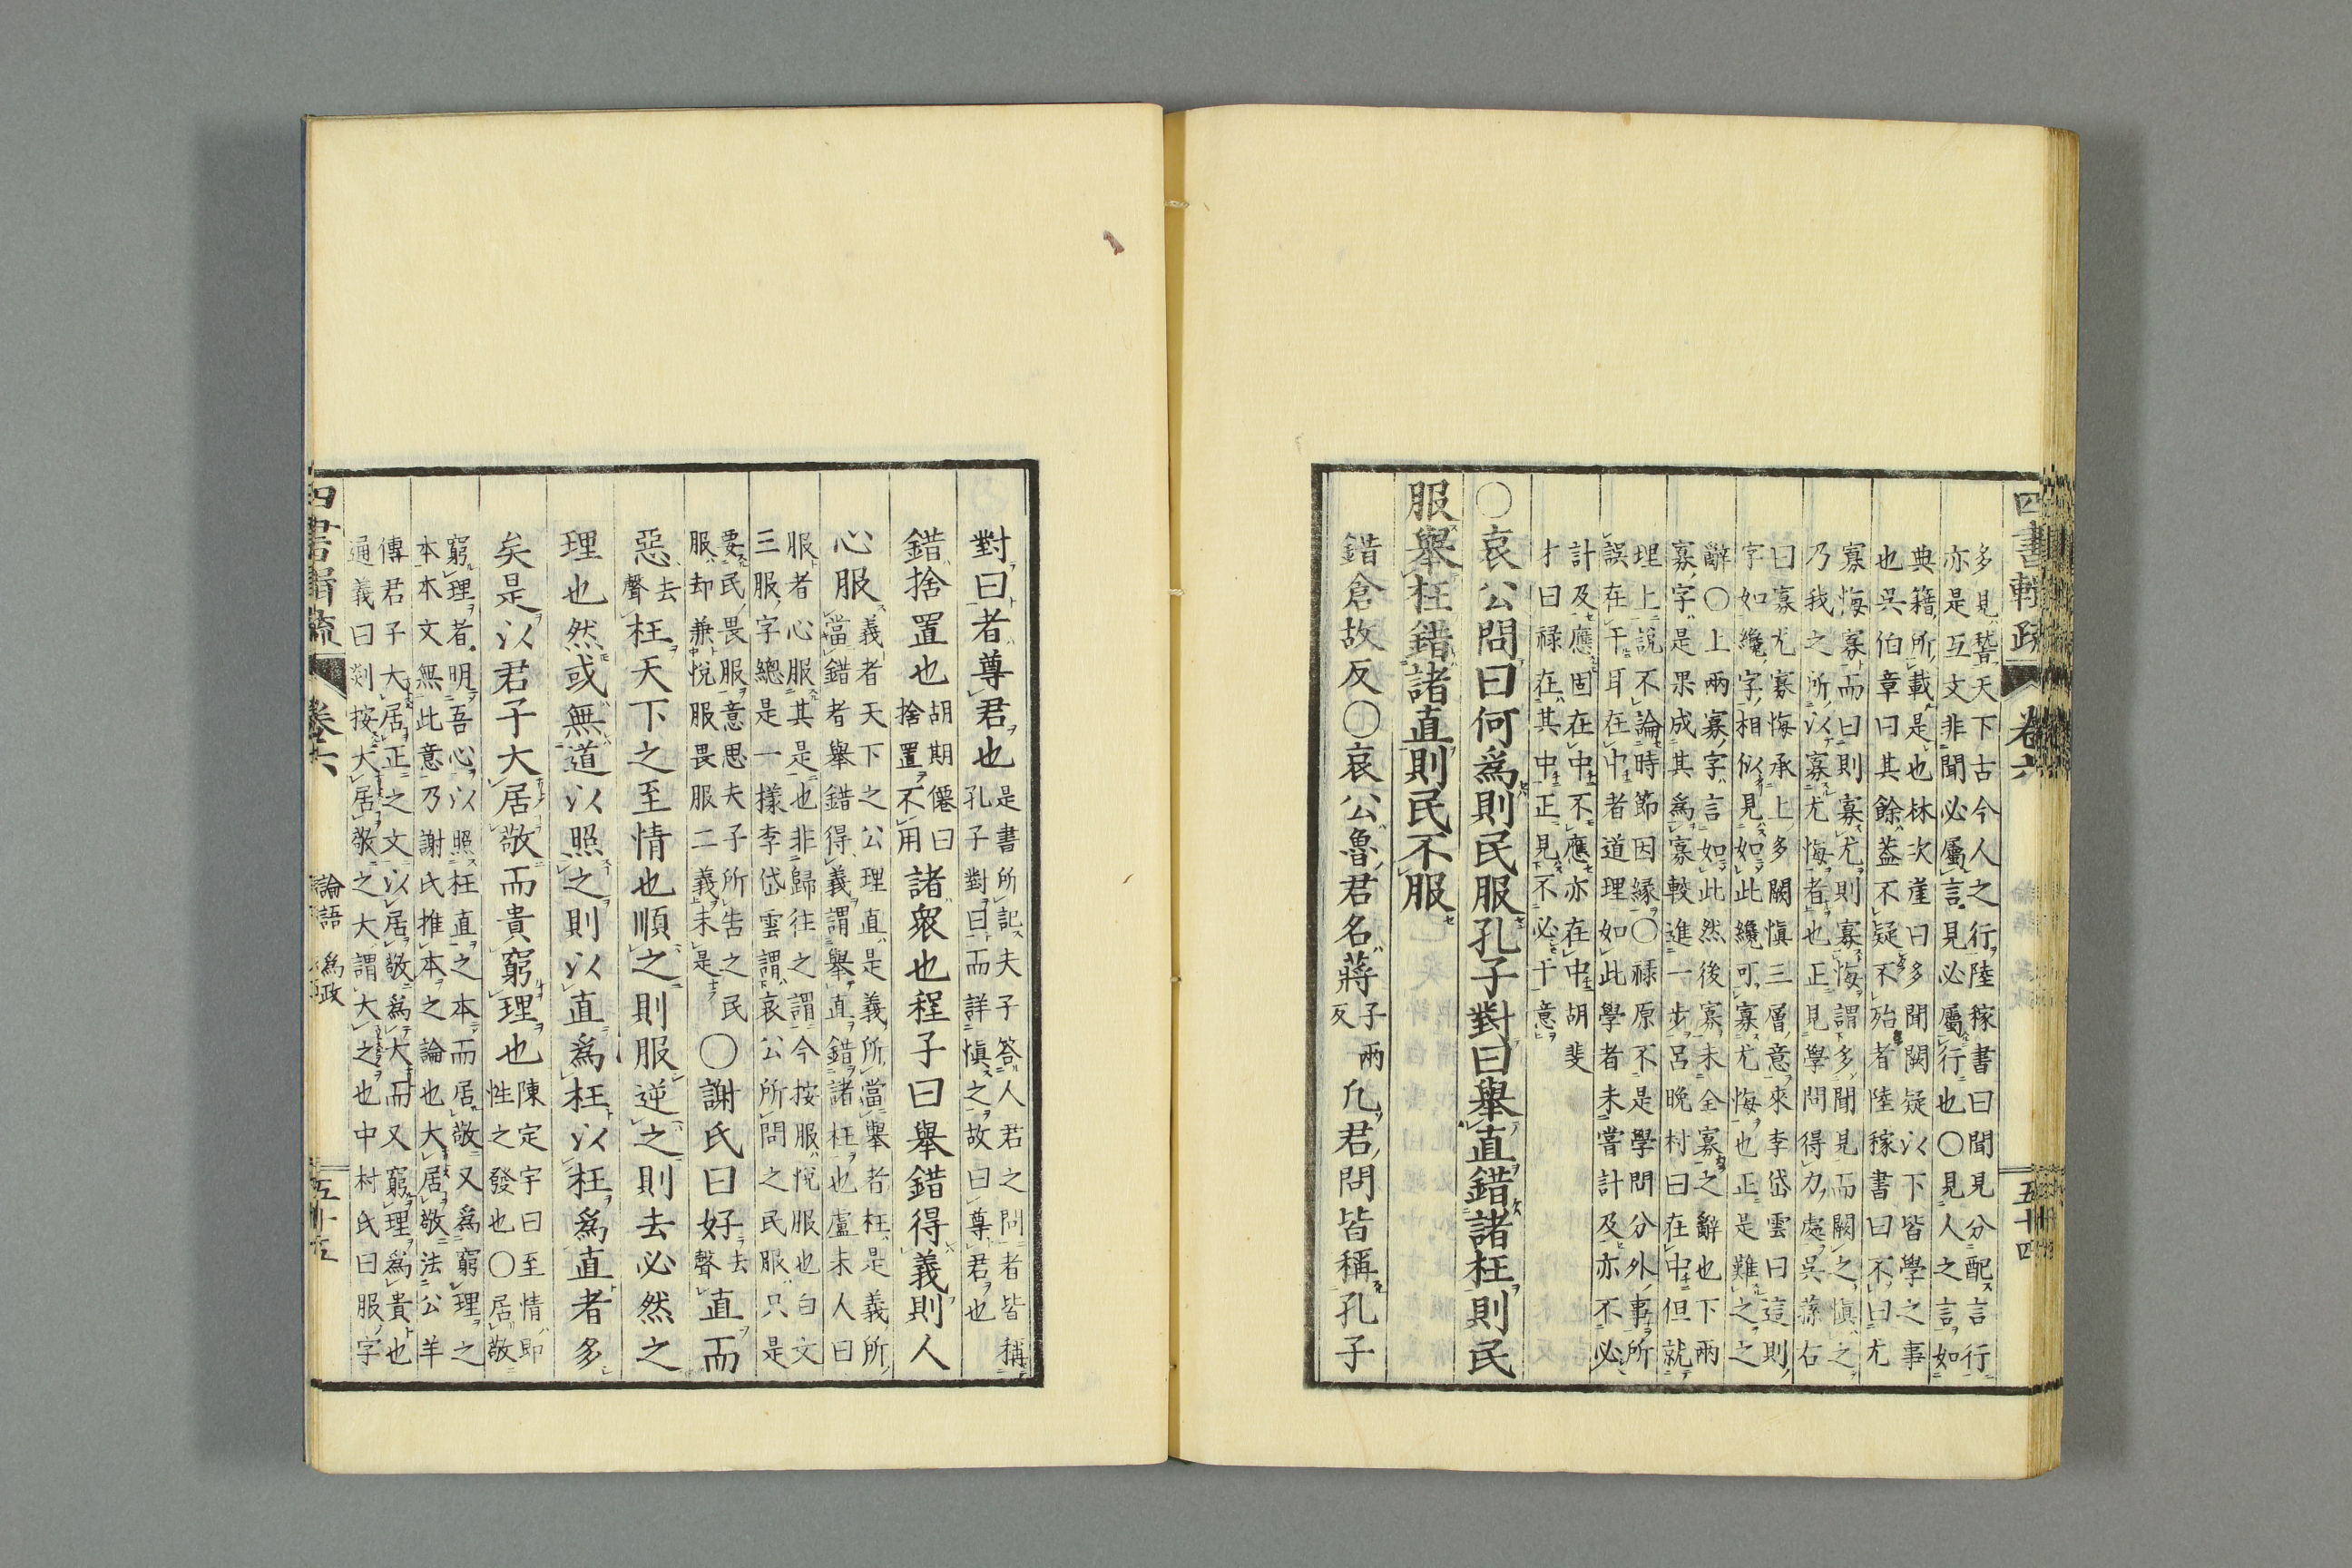 四書輯疏
卷六
五十四
多見、盡天下古今人之行、陸稼書曰聞見分配言行
亦是互文非聞必屬言見必屬行也〇見人之言如
典籍所載是也林次崖曰多聞闕疑以下皆學之事
也吳伯章曰其餘蓋不疑不殆者陸稼書曰不曰尤
寡悔寡而曰則寡尤則寡悔謂多聞見而闕之慎之
乃我之所以寡尤悔者也正見學問得力處吳蓀右
曰寡尤寡悔承上多闕慎三層意來李岱雲曰這則
字如纔字相似見如此纔可寡尤悔也正是難之之
辭〇上兩寡字言如此然後寡未全寡之辭也下兩
寡字是果成其爲寡較進一步呂晚村曰在中但就
理上說不論時節因緣〇祿原不是學問分外事所
誤在干耳在中者道理如此學者未嘗計及亦不必
計及應固在中不應亦在中胡斐
才曰祿在其中正見不必干意
〇哀公問曰何爲則民服孔子對曰舉直錯諸枉則民
服舉枉錯諸直則民不服
錯倉故反〇哀公魯君名蔣子兩反凡君問皆稱孔子
對曰者尊君也是書所記夫子答人君之問者皆稱
孔子對曰而詳愼之故曰尊君也
錯捨置也胡期僊曰捨置不用諸衆也程子曰舉錯得義則人
心服義者天下之公理直是義所當舉者枉是義所
當錯者舉錯得義謂舉直錯諸枉也盧未人曰
服者心服其是也非歸往之謂今按服悅服也白文
三服字總是一樣李岱雲謂哀公所問之民服只是
要民畏服意思夫子所告之民
服却兼悅服畏服二義未是〇謝氏曰好去聲直而
惡去聲枉天下之至情也順之則服逆之則去必然之
理也然或無道以照之則以直爲枉以枉爲直者多
矣是以君子大居敬而貴窮理也陳定宇曰至情即
性之發也〇居敬
窮理者明吾心以照枉直之本而居敬又爲窮理之
本本文無此意乃謝氏推本之論也大居敬法公羊
傳君子大居正之文以居敬爲大而又窮理爲貴也
通義曰剡按大居敬之大謂大之也中村氏曰服字
四書輯疏
卷六
論語 爲政
五十五